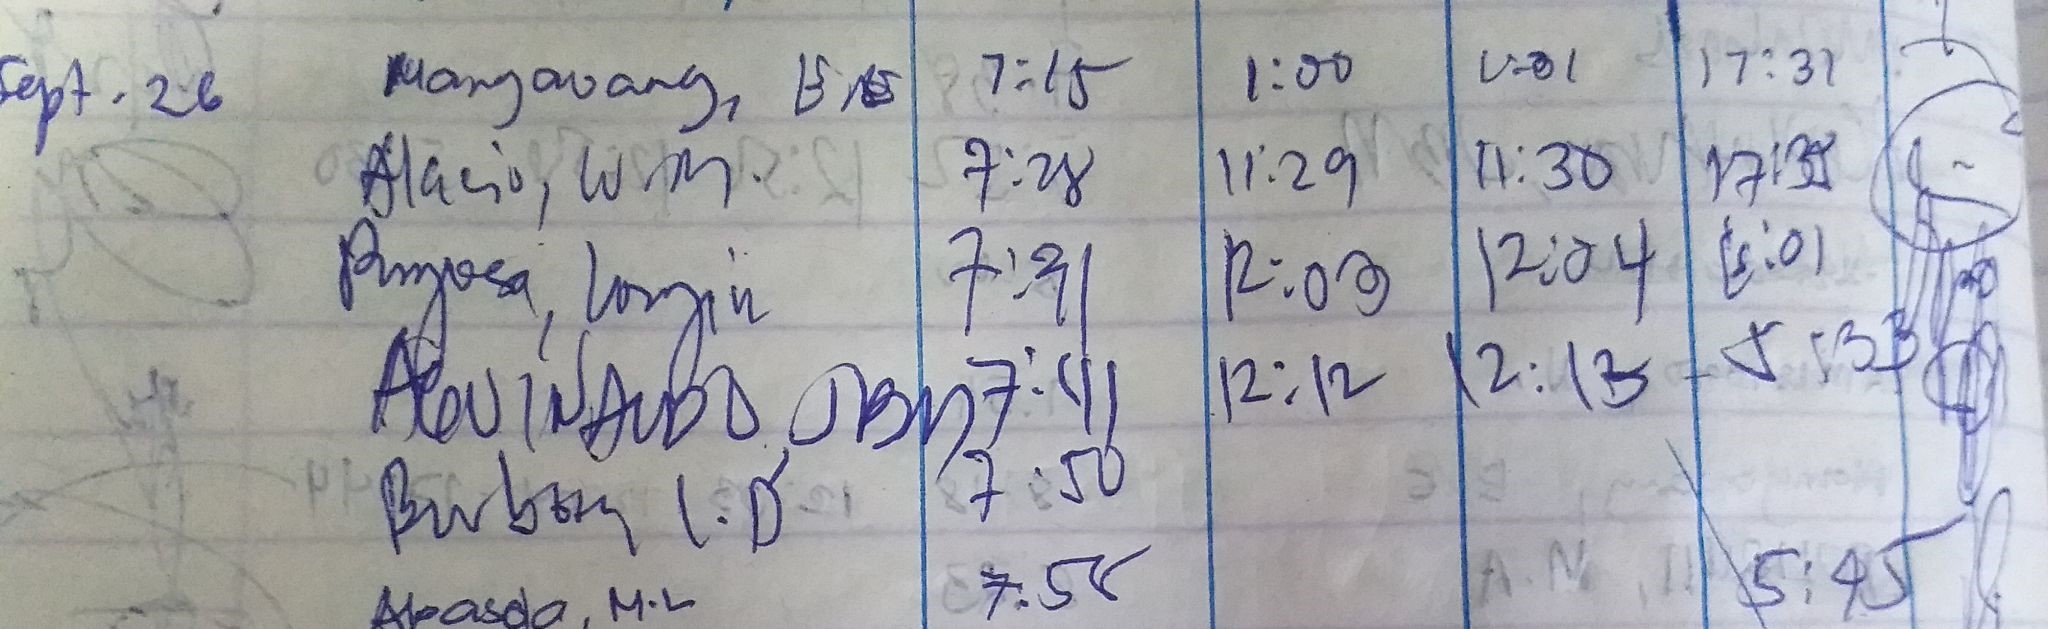 Sept. 26 Mangavang, 7:15 1:00 1:01 17:31
Alacio, W.M. 7:28 11:29 11:30 17:38
7:31 12:03 12:04 5:01
AGUINALDO, JBM 7:41 12:12 12:13 - 5:33
7:50
Abasda, M.L 7:55 5:45